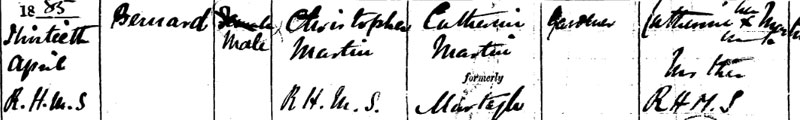 1885
Thirtieth
April
R.H.M.S
Bernard
Female
Male
Christopher
Martin
R.H.M.S.
Catherine
Martin
formerly
Gardener
Catherine
her
x
Martin
mark
Mother
R H M S